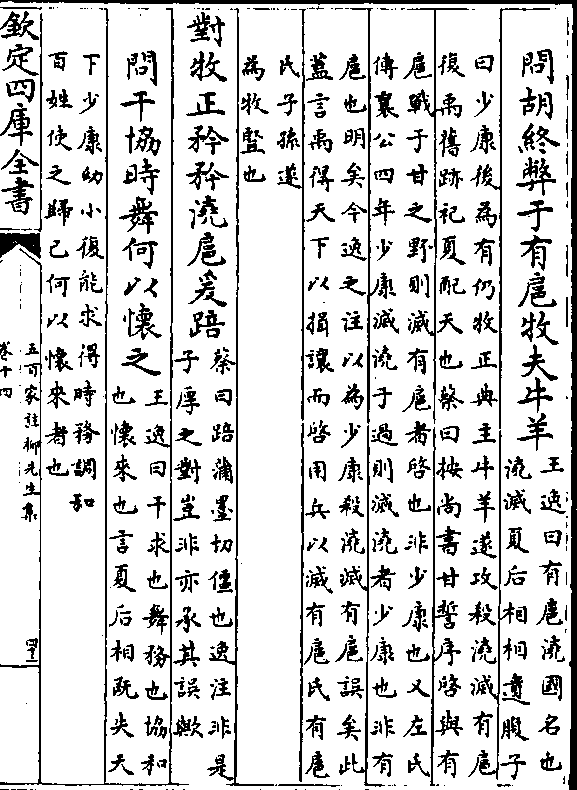 問胡終弊于有扈牧夫牛羊
王逸曰有扈澆國名也
澆滅夏后相相遺腹子
曰少康後為有仍牧正典主牛羊遂攻殺澆滅有扈
復禹舊跡祀夏配天也蔡曰按尚書甘誓序啓與有
扈戰于甘之野則滅有扈者啓也非少康也又左氏
傳襄公四年少康滅澆于過則滅澆者少康也非有
扈也明矣今逸之注以為少康殺澆滅有扈誤矣此
蓋言禹得天下以揖讓而啓用兵以滅有扈氏有扈
氏子孫遂
為牧豎也
對牧正矜矜澆扈爰踣
蔡曰踣蒲墨切僵也逸注非是
子厚之對豈非亦承其誤歟
問干協時舞何以懷之
王逸曰干求也舞務也協和
也懷來也言夏后相既失天
下少康幼小復能求得時務調和
百姓使之歸己何以懷來者也
欽定四庫全書
五百家註柳先生集
卷十四